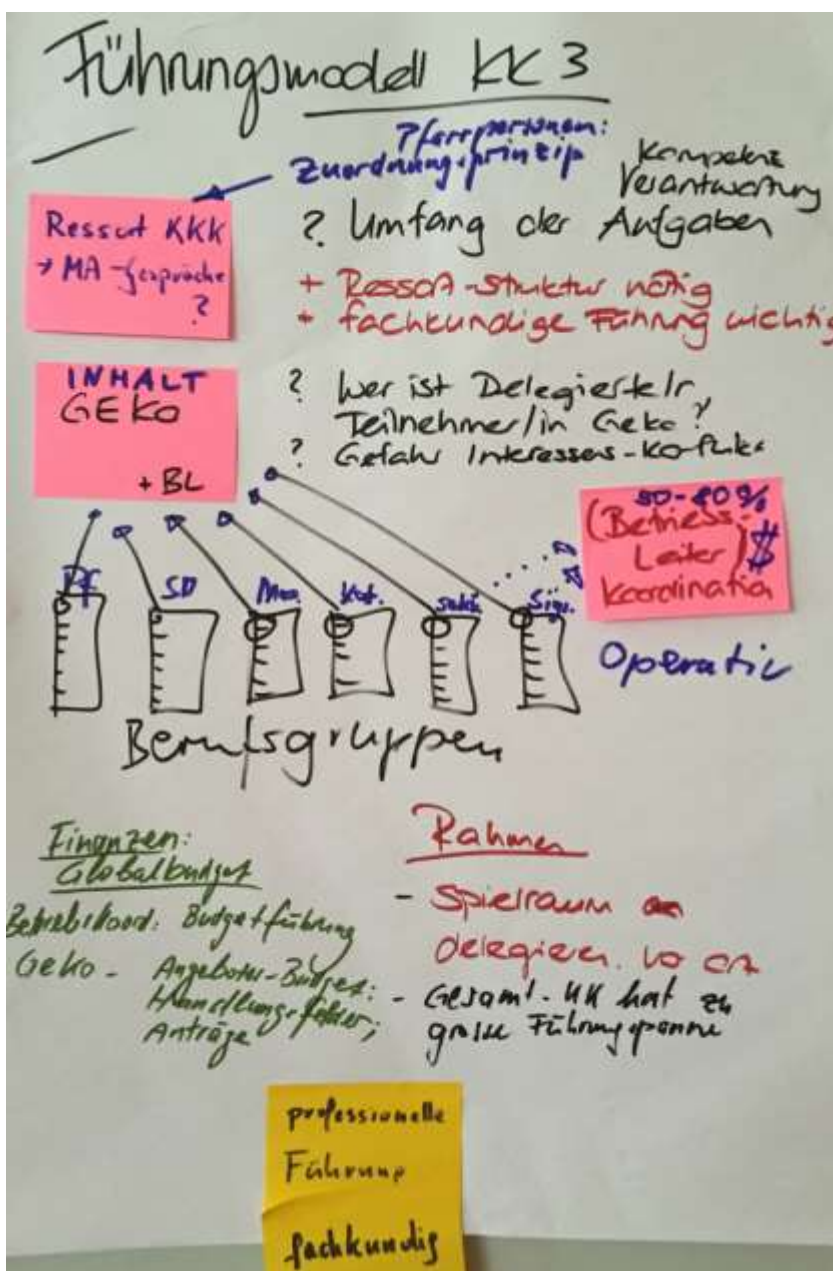 Führungsmodell KK 3
Pfarrpersonen:
Zuordnungsprinzip
Kompetenz
Verantwortung
Ressort KKK
→ MA-Gespräche
?
? Umfang der Aufgaben
+ Ressort-Struktur nötig
+ fachkundige Führung wichtig
INHALT
GEKO
+ BL
? Wer ist Delegierte/r,
Teilnehmer/in Geko?
? Gefahr Interessens-Konflikt
50-80%
(Betriebs-
Leiter) $
Koordination
Operativ
Pf
SD
Mus.
Kat.
Sekr.
Sigr.
Berufsgruppen
Finanzen:
Globalbudget
Betriebskoord: Budgetführung
Geko - Angebots-Budget:
Handlungsfelder;
Anträge
Rahmen
- Spielraum
delegieren vo Ort
- Gesamt-KK hat zu
grosse Führungsspanne
professionelle
Führung
fachkundig